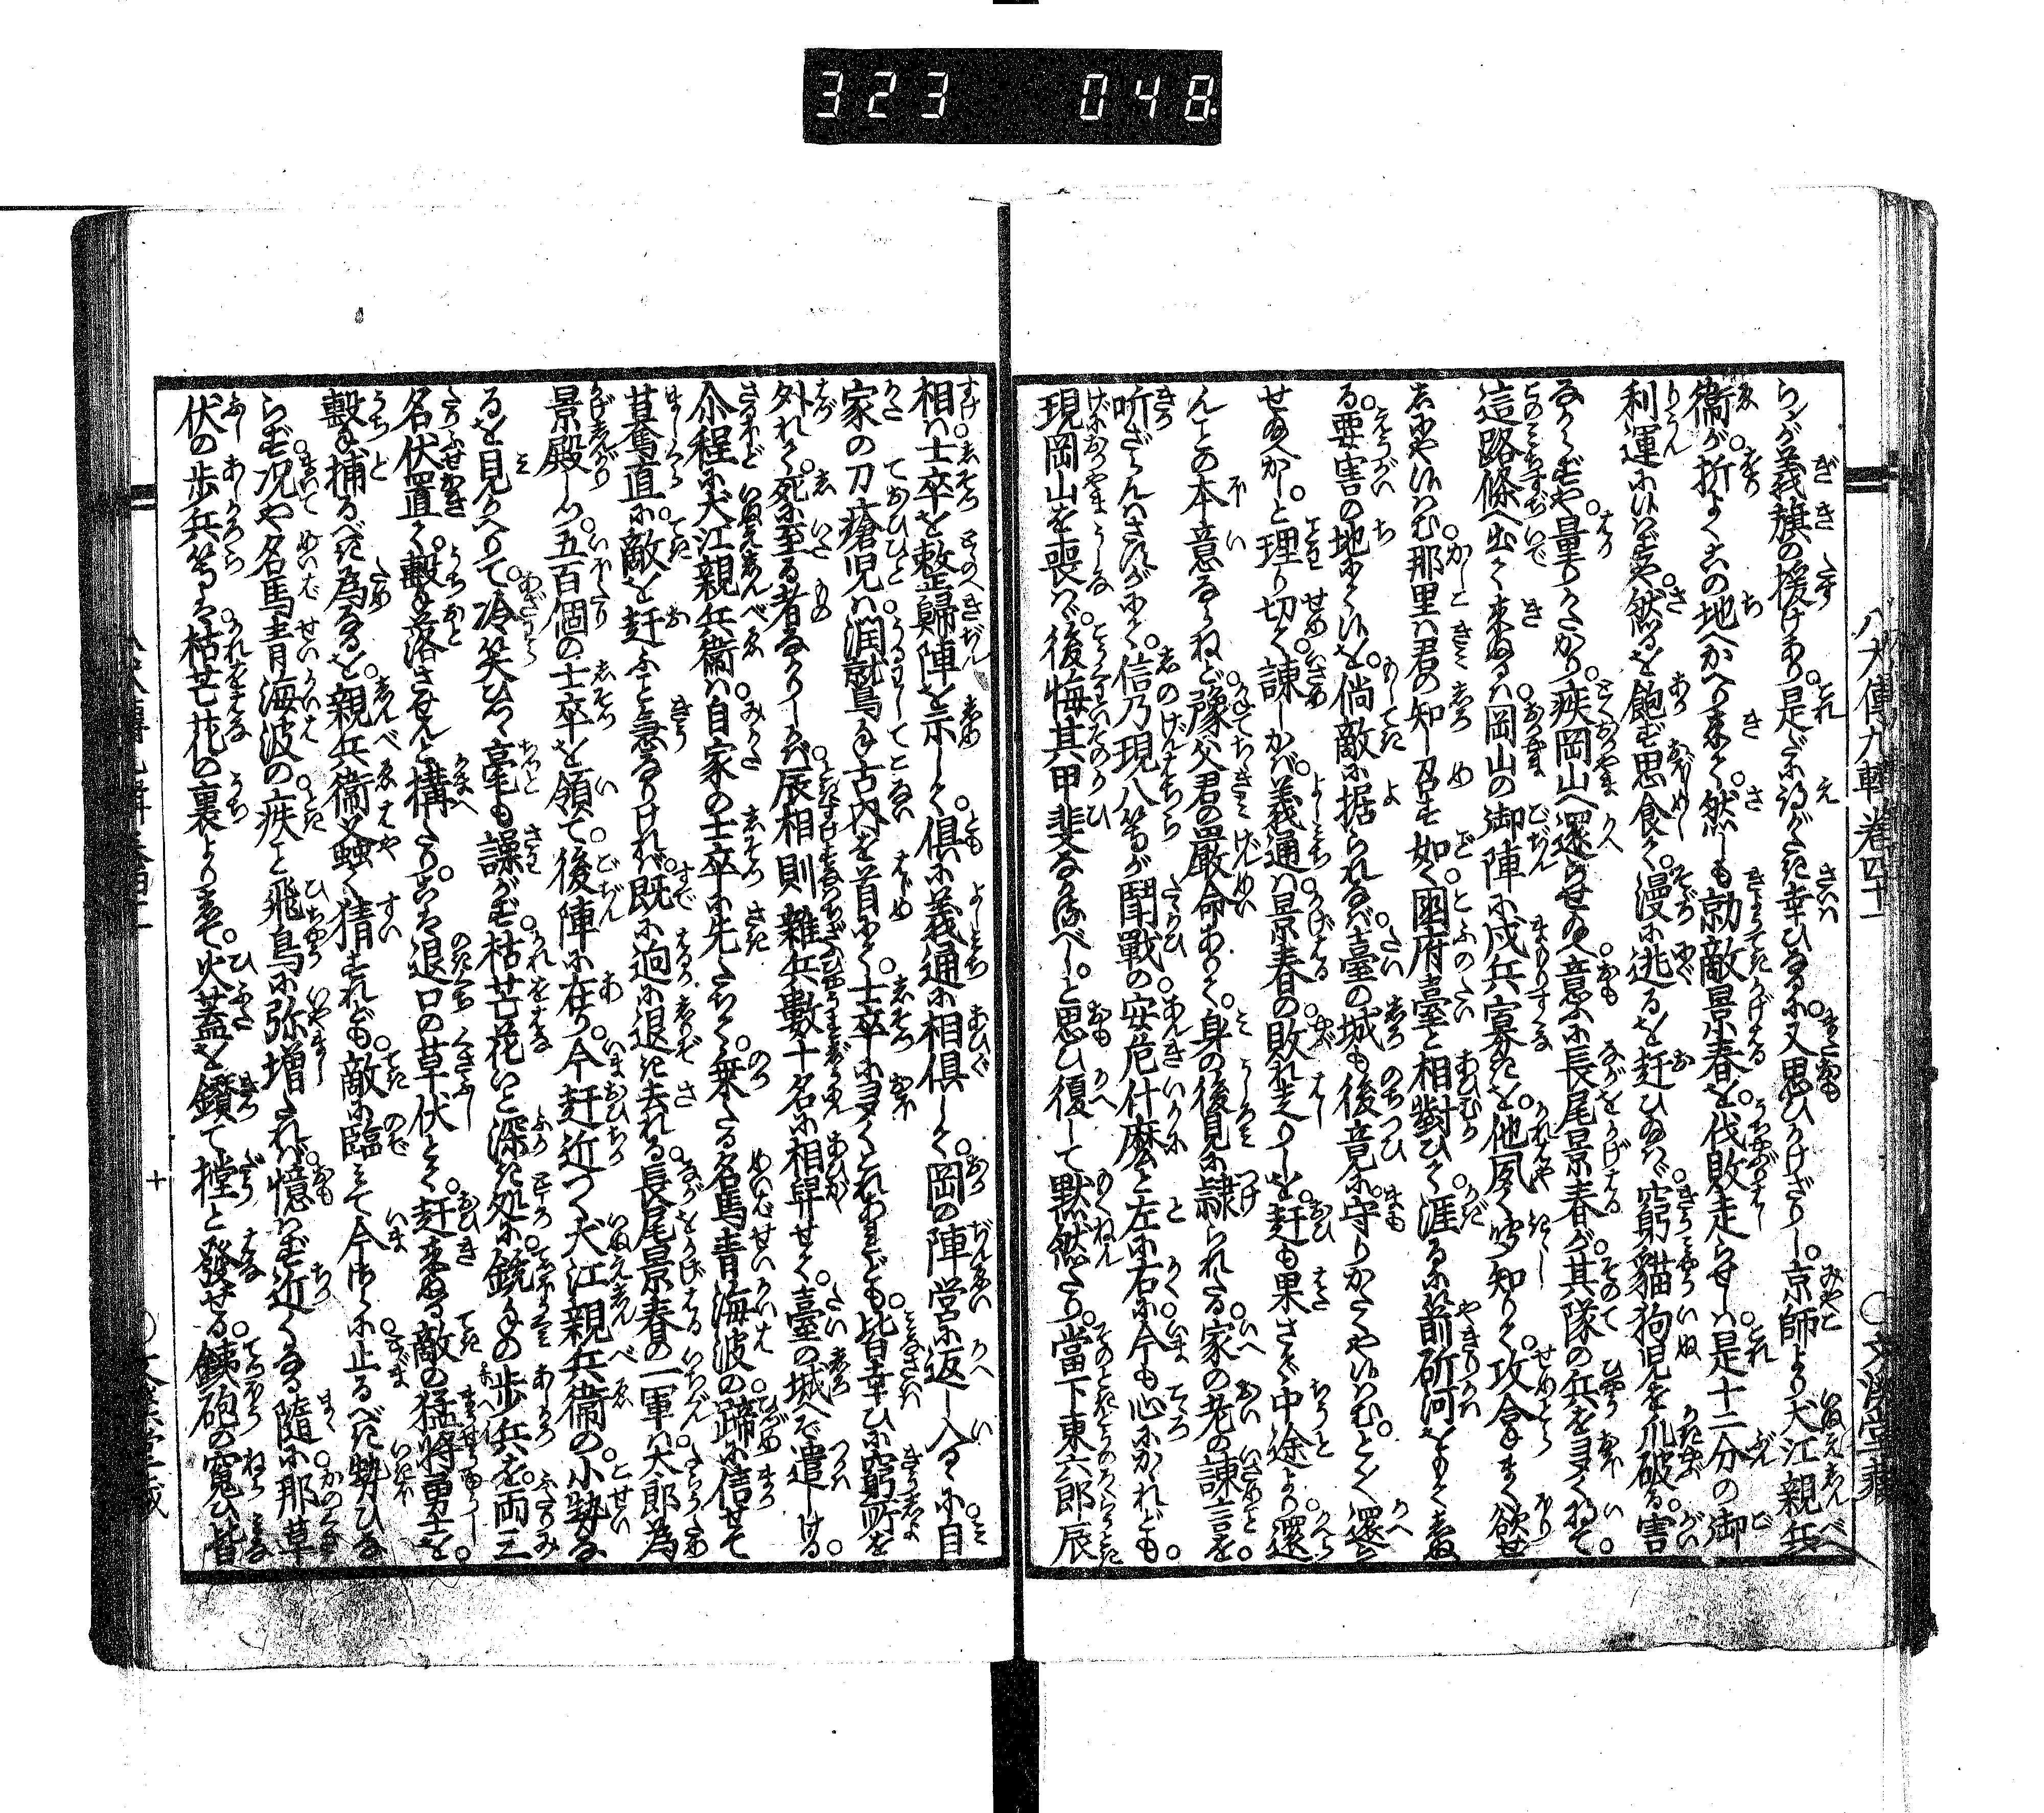 323 048
八犬傳九輯卷四十一
○文溪堂藏
らが義旗の援けあり。是だに得がたき幸ひなるに。又思ひかけざりし。京師より犬江親兵
衞が。折よくこの地へかへり來て。然しも勍敵景春を。伐敗走らせしは是十二分の御
利運に侍らずや。然るを飽ず思食て。漫に逃るを赶ひ給はゞ。窮鼠猫狗児を爪破る害
なからずや。量りがたかり。疾岡山へ還らせ給へ。意ふに長尾景春が。其隊の兵を多くゐて。
這路條へ出て來ぬるは。岡山の御陣に戍兵寡きを。他夙く聞知りて。攻合まく欲せ
しにや侍はむ。那里は君の知し召す如く。國府臺と相對ひて。涯るに箭斫河をもて
る。要害の地にて侍るを。倘敵に据られなば。臺の城も後竟に。守りがたくや侍はむ。とく還ら
せ給へかし。と理り切て。諫しかば。義通は景春の。敗れ走りしを。赶も果さで中途より。還
んことの本意ならねど。豫父君の嚴命ありて。身の後見に隷られたる。家の老の諫言を。
听ざらんはさすがにて。信乃現八等が鬪戰の。安危什麽と左に右に。今も心にかゝれども。
現岡山を喪はゞ。後悔其甲斐なかるべし。と思ひ復して默然たり。當下東六郎辰
相は士卒を整。歸陣を示して。倶に義通に相倶して。岡の陣営に返し入るゝに。自
家の刀瘡児は。潤鷲手古内を首にて。士卒に多くこれあれども。皆幸ひに窮所を
外れて。死に至る者なかりしかば。辰相則雜兵數十名に相舁せて。臺の城へぞ遣しける。
尒程に犬江親兵衞は。自家の士卒に先たちて。乗たる名馬青海波の。蹄に信せて
驀直に。敵を赶ふこと急なりければ。既に逈に退き去れる。長尾景春の一軍は。太郎為
景殿しつ。五百個の士卒を領て。後陣に在り。今赶近つく犬江親兵衞の。小勢な
るを見かへりて。冷笑ひつゝ毫も譟がず。枯芒花いと深き処に。銃手の歩兵を。両三
名伏置て。轂を落させんと構へたり。かゝる退口の草伏とて。赶來ぬる敵の猛將勇士を。
轂手捕るべき為なるを。親兵衞又蚤く猜したれども。敵に臨みて今さらに止るべき勢ひな
らず。况や名馬青海波の。疾こと飛鳥に弥増たれば。憶はず近くなる隨に。那草
伏の歩兵等は。枯芒花の裏よりして。火蓋を鑽て撞と發せる。銕砲の寛ひ皆
十